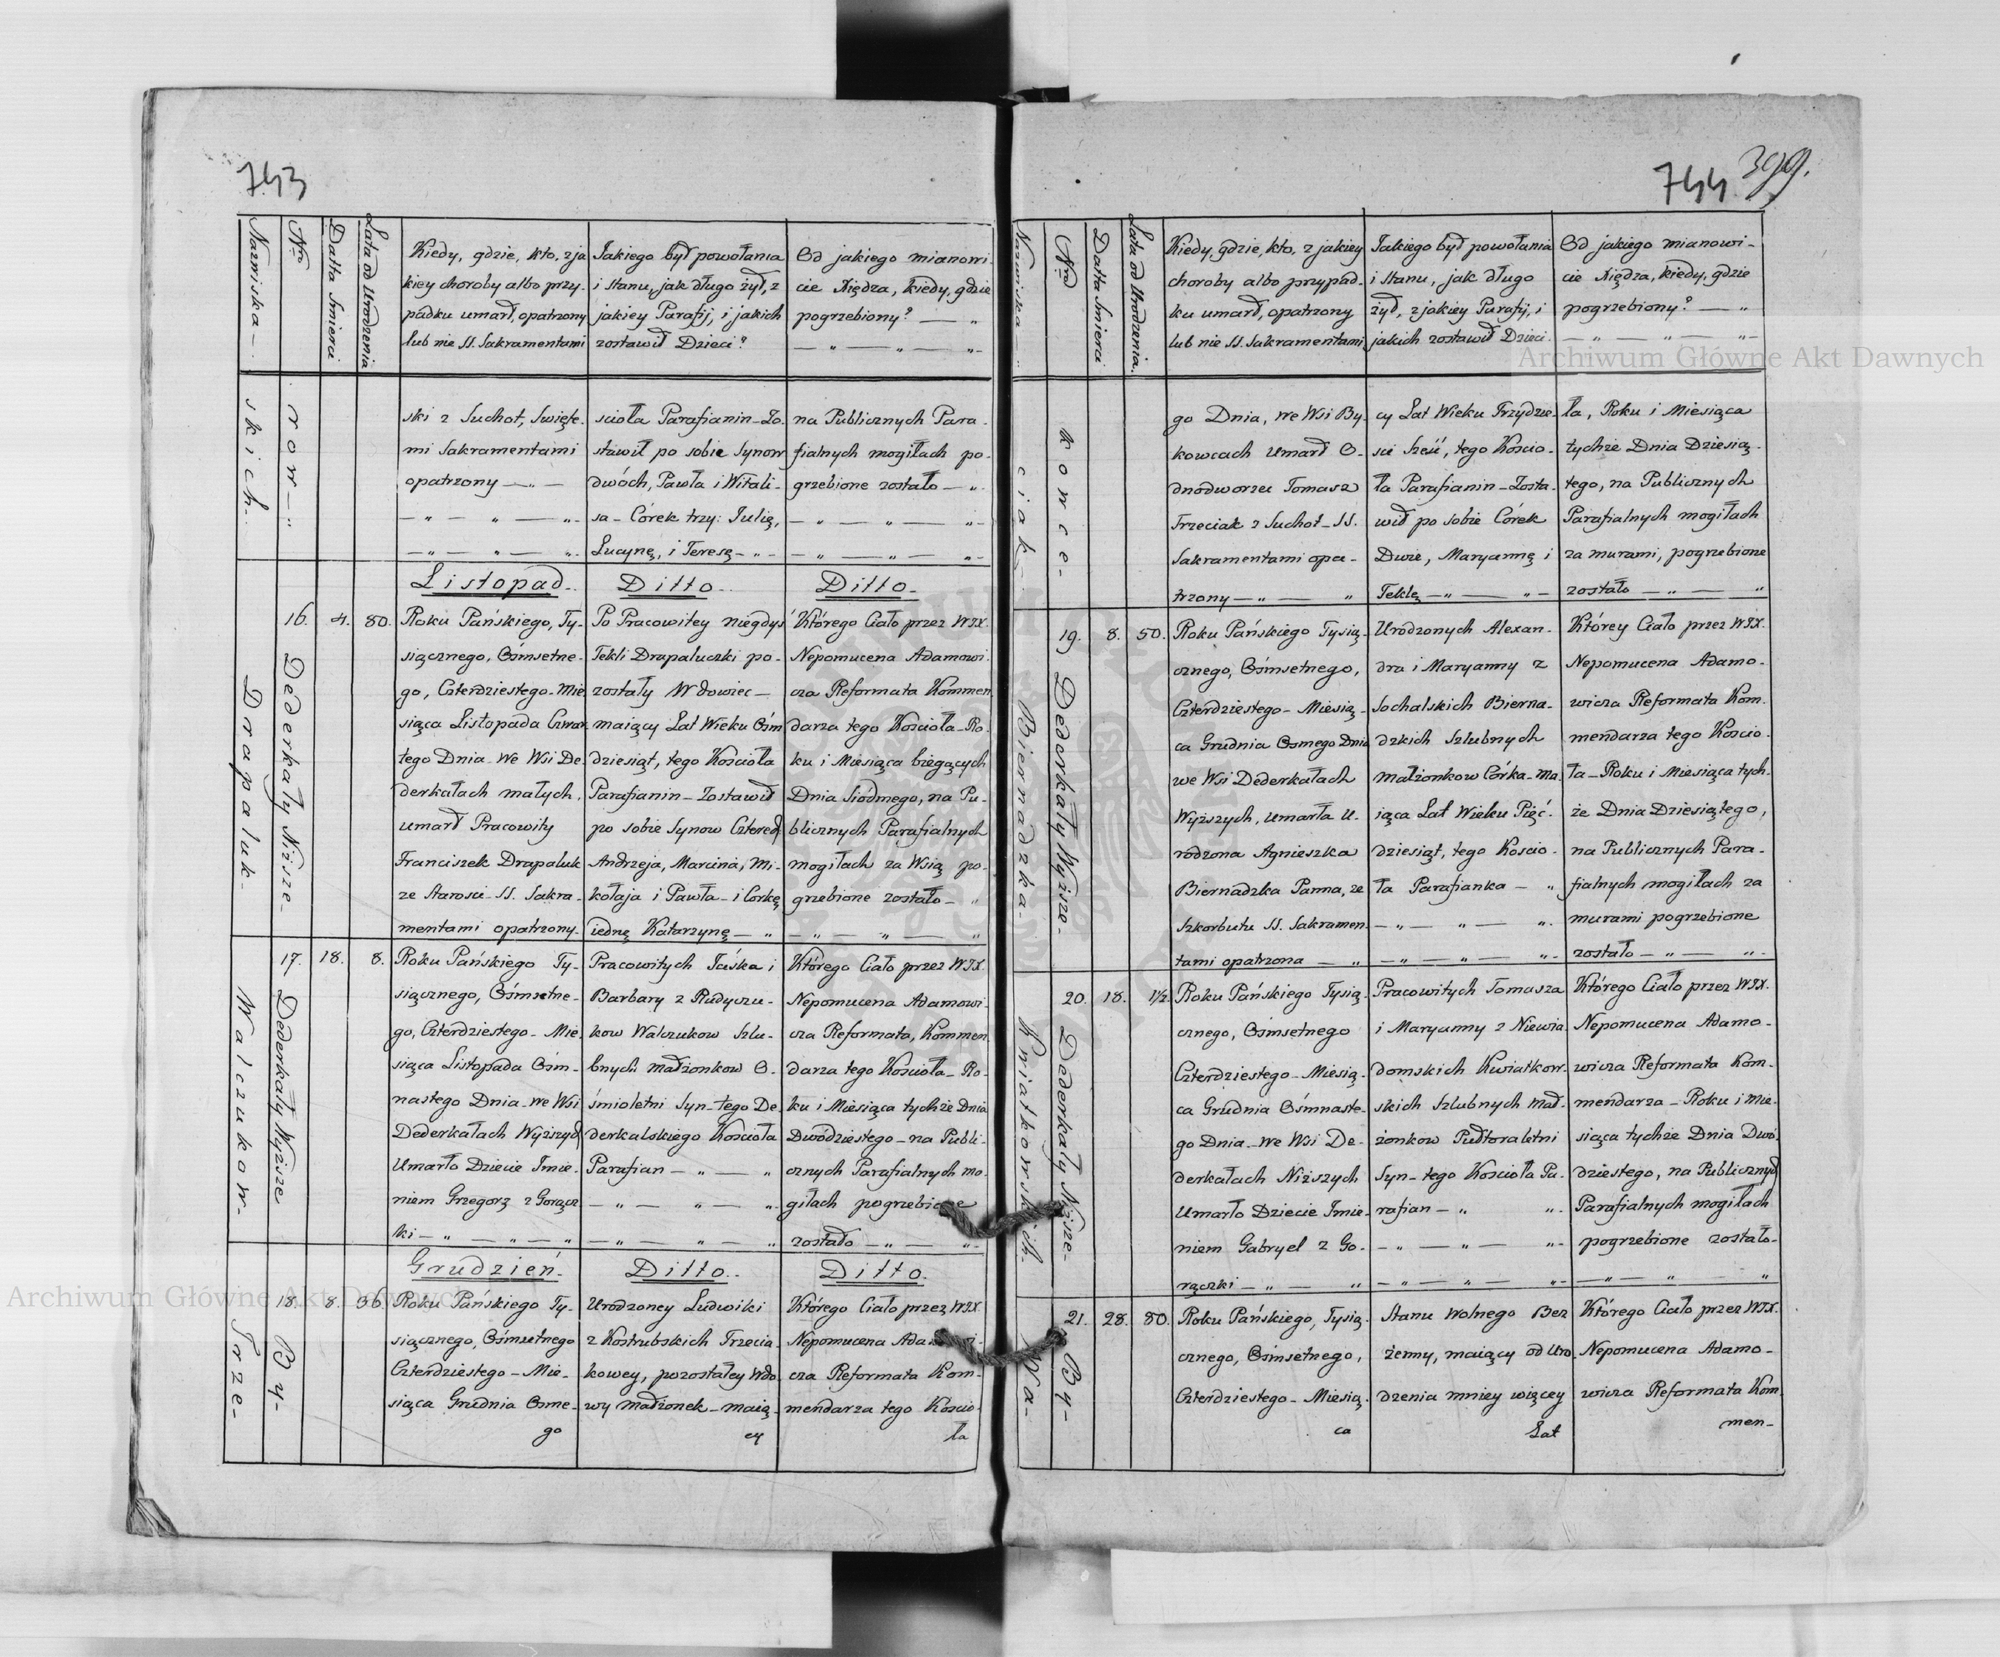 743
Nazwiska
Nro
Datta Smierci
Lata od Urodzenia
Kiedy, gdzie, kto, z ja
kiey choroby albo przy-
padku umarł, opatrzony
lub nie SS. Sakramentami
Jakiego był powołania
i stanu, jak długo żył, z
jakiey Parafij, i jakich
zostawił Dzieci?
Od jakiego mianowi
cie Xiędza, kiedy, gdzie
pogrzebiony? — "
— " — " — "-
skich.
ror — "
ski z Suchot, Święte-
mi Sakramentami
opatrzony — " —
— " " — "-
— " — " — "-
scioła Parafianin – Zo-
stawił po sobie Synow
dwóch, Pawła i Witali-
sa – Córek trzy: Julię,
Lucynę, i Teresę – " -
na Publicznych Para-
fialnych mogiłach po-
grzebione zostało — "-
— " — " — "-
— " — " — "-
Listopad.
Ditto.
Ditto.
Drapaluk.
16.
Dederkały Niższe.
4.
80.
Roku Pańskiego, Ty-
siącznego, Ośmsetne-
go, Czterdziestego – Mie
siąca Listopada Czwar
tego Dnia – We Wsi De
derkałach małych,
umarł Pracowity
Franciszek Drapaluk
ze Starosci – SS. Sakra-
mentami opatrzony.
Po Pracowitey niegdyś
Tekli Drapaluczki po-
zostały Wdowiec —
maiący Lat Wieku Ośm
dziesiąt, tego Kościoła
Parafianin – Zostawił
po sobie Synow Czterech
Andrzeja, Marcina, Mi-
kołaja i Pawła – i Corkę
iednę Katarzynę — "
Którego Ciało przez WJX.
Nepomucena Adamowi-
cza Reformata Kommen
darza tego Kościoła – Ro-
ku i Miesiąca biegących
Dnia Siodmego, na Pu-
blicznych Parafialnych
mogiłach za Wsią po-
grzebione zostało — "
— " — " — "
Walczukow.
17.
Dederkały Wyższe
18.
8.
Roku Pańskiego Ty-
siącznego, Ośmsetne-
go, Czterdziestego – Mie-
siąca Listopada Ośm-
nastego Dnia – we Wsi
Dederkałach Wyższych
Umarło Dziecie Imie-
niem Grzegorz z Gorącz
ki — " — " — "
Pracowitych Jaśka i
Barbary z Rudyczu-
kow Walczukow Szlu-
bnych małżonkow O-
śmioletni Syn – tego De-
derkalskiego Kościoła
Parafian — " — "
— " — " — "-
— " — " — "
Którego Ciało przez WJX.
Nepomucena Adamowi-
cza Reformata, Kommen
darza tego Kościoła – Ro-
ku i Miesiąca tychże Dnia
Dwódziestego – na Publi-
cznych Parafialnych mo-
giłach pogrzebione
zostało — " — "-
Grudzień.
Ditto.
Ditto.
Trze-
18.
By-
8.
36.
Roku Pańskiego Ty-
siącznego, Ośmsetnego
Czterdziestego – Mie-
siąca Grudnia Osme-
go
Urodzoney Ludwiki
z Kostrubskich Trzecia-
kowey, pozostałey Wdo-
wy małżonek – maią-
cy
Którego Ciało przez WJX.
Nepomucena Adamowi-
cza Reformata Kom-
mendarza tego Kościo-
ła
744
399.
Nazwiska
Nro
Datta Smierci
Lata od Urodzenia.
Kiedy, gdzie, kto, z jakiey
choroby albo przypad-
ku umarł, opatrzony
lub nie SS. Sakramentami
Jakiego był powołania
i Stanu, jak długo
żył, z jakiey Parafij, i
jakich zostawił Dzieci.
Od jakiego mianowi-
cie Xiędza, kiedy, gdzie
pogrzebiony? — "
— " — " — "-
ciak.
kowce.
go Dnia, we Wsi By-
kowcach umarł O-
dnodworzec Tomasz
Trzeciak z Suchot – SS.
Sakramentami opa-
trzony — " — "
cy Lat Wieku Trzydzie-
sci Sześć, tego Kościo-
ła Parafianin – Zosta-
wił po sobie Córek
Dwie, Maryannę i
Teklę — " — " -
ła, Roku i Miesiąca
tychże Dnia Dziesią-
tego, na Publicznych
Parafialnych mogiłach
za murami, pogrzebione
zostało — " — "
Biernadzka.
19.
Dederkały Wyższe.
8.
50.
Roku Pańskiego Tysią-
cznego, Ośmsetnego,
Czterdziestego – Miesią-
ca Grudnia Osmego Dnia
we Wsi Dederkałach
Wyższych, umarła U-
rodzona Agnieszka
Biernadzka Panna, ze
Szkorbutu SS. Sakramen-
tami opatrzona — "
Urodzonych Alexan-
dra i Maryanny z
Sochalskich Bierna-
dzkich Szlubnych
małżonkow Córka – ma-
iąca Lat Wieku Pięć-
dziesiąt, tego Koscio-
ła Parafianka — "
— " — " — "-
— " — " — "-
Którey Ciało przez WJX.
Nepomucena Adamo-
wicza Reformata Kom-
mendarza tego Koscio-
ła – Roku i Miesiąca tych-
że Dnia Dziesiątego,
na Publicznych Para-
fialnych mogiłach za
murami pogrzebione
zostało — " — "-
Kwiatkowskich.
20.
Dederkały Niższe.
18.
1½
Roku Pańskiego Tysią-
cznego, Ośmsetnego
Czterdziestego – Miesią-
ca Grudnia Ośmnaste-
go Dnia – we Wsi De-
derkałach Niższych
Umarło Dziecie Imie-
niem Gabryel z Go-
rączki — " — "
Pracowitych Tomasza
i Maryanny z Niewia-
domskich Kwiatkow-
skich Szlubnych mał-
żonkow Pułtoraletni
Syn – tego Kościoła Pa-
rafian — " "-
— " — " — "-
— " — " — "-
Którego Ciało przez WJX.
Nepomucena Adamo-
wicza Reformata Kom-
mendarza – Roku i Mie-
siąca tychże Dnia Dwó-
dziestego, na Publicznych
Parafialnych mogiłach
pogrzebione zostało –
— " — " — "
Wa-
21.
By-
28.
80.
Roku Pańskiego, Tysią-
cznego, Ośmsetnego,
Czterdziestego – Miesią-
ca
Stanu Wolnego Bez
żenny, maiący od Uro-
dzenia mniey więcey
Lat
Którego Ciało przez WJX.
Nepomucena Adamo-
wicza Reformata Kom
men-
Archiwum Główne Akt Dawnych
Archiwum Główne Akt Dawnych